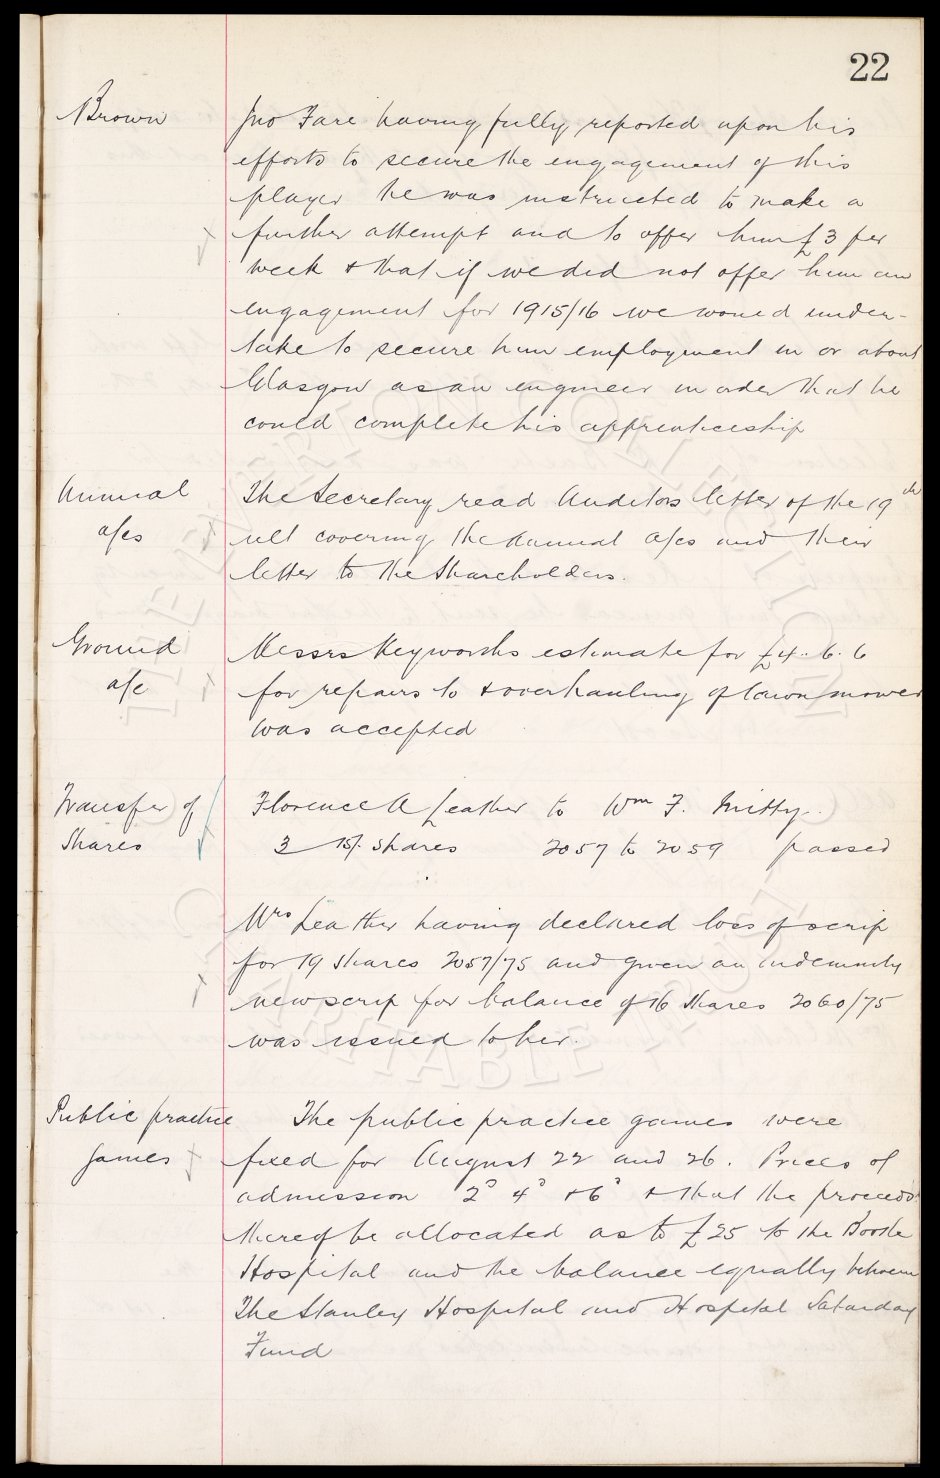 22
Brown
Jno Fare having fully reported upon his
efforts to secure the engagement of this
player he was instructed to make a
further attempt and to offer him £3 per
week & that if we did not offer him an
engagement for 1915/16 we would under-
take to secure him employment in or about
Glasgow as an engineer in order that he
could complete his apprenticeship
Annual
a/cs
The Secretary read Auditors letter of the 19th
ult covering the Annual a/cs and their
letter to the Shareholders.
Ground
a/c
Messrs Keyworths estimate for £4.6.6
for repairs to & overhauling of lawn mower
was accepted
Transfer of
Shares
Florence A Leather to Wm F.
3 15/- shares 2057 to 2059 passed
Mrs Leather having declared loss of scrip
for 19 shares 2057/75 and given an indemnity
new scrip for balance of 16 shares 2060/75
was issued to her.
Public practice
games
The public practice games were
fixed for August 22 and 26. Prices of
admission 2d 4d & 6d & that the proceeds
thereof be allocated as to £25 to the Bootle
Hospital and the balance equally between
The Stanley Hospital and Hospital Saturday
Fund
THE EVERTON COLLECTION
CHARITABLE TRUST